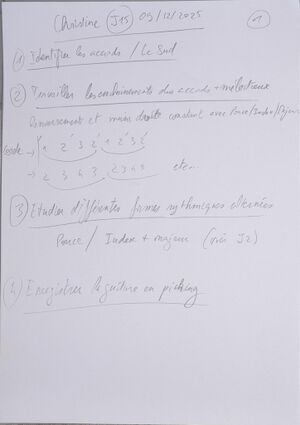 Christine J15 09/12/2025 1
1) Identifier les accords / Le Sud
2) Travailler les enchaînements des accords + mélodieux
Renversement et main droite constant avec Pouce/Index/Majeur
Code → 1 2' 3 2' 1 2' 3' 2'
→ 2 3 4 3, 2 3 4 3 etc..
3) Etudier différentes formes rythmiques alternées
Pouce / Index + majeur (voir J2)
4) Enregistrer la guitare en picking